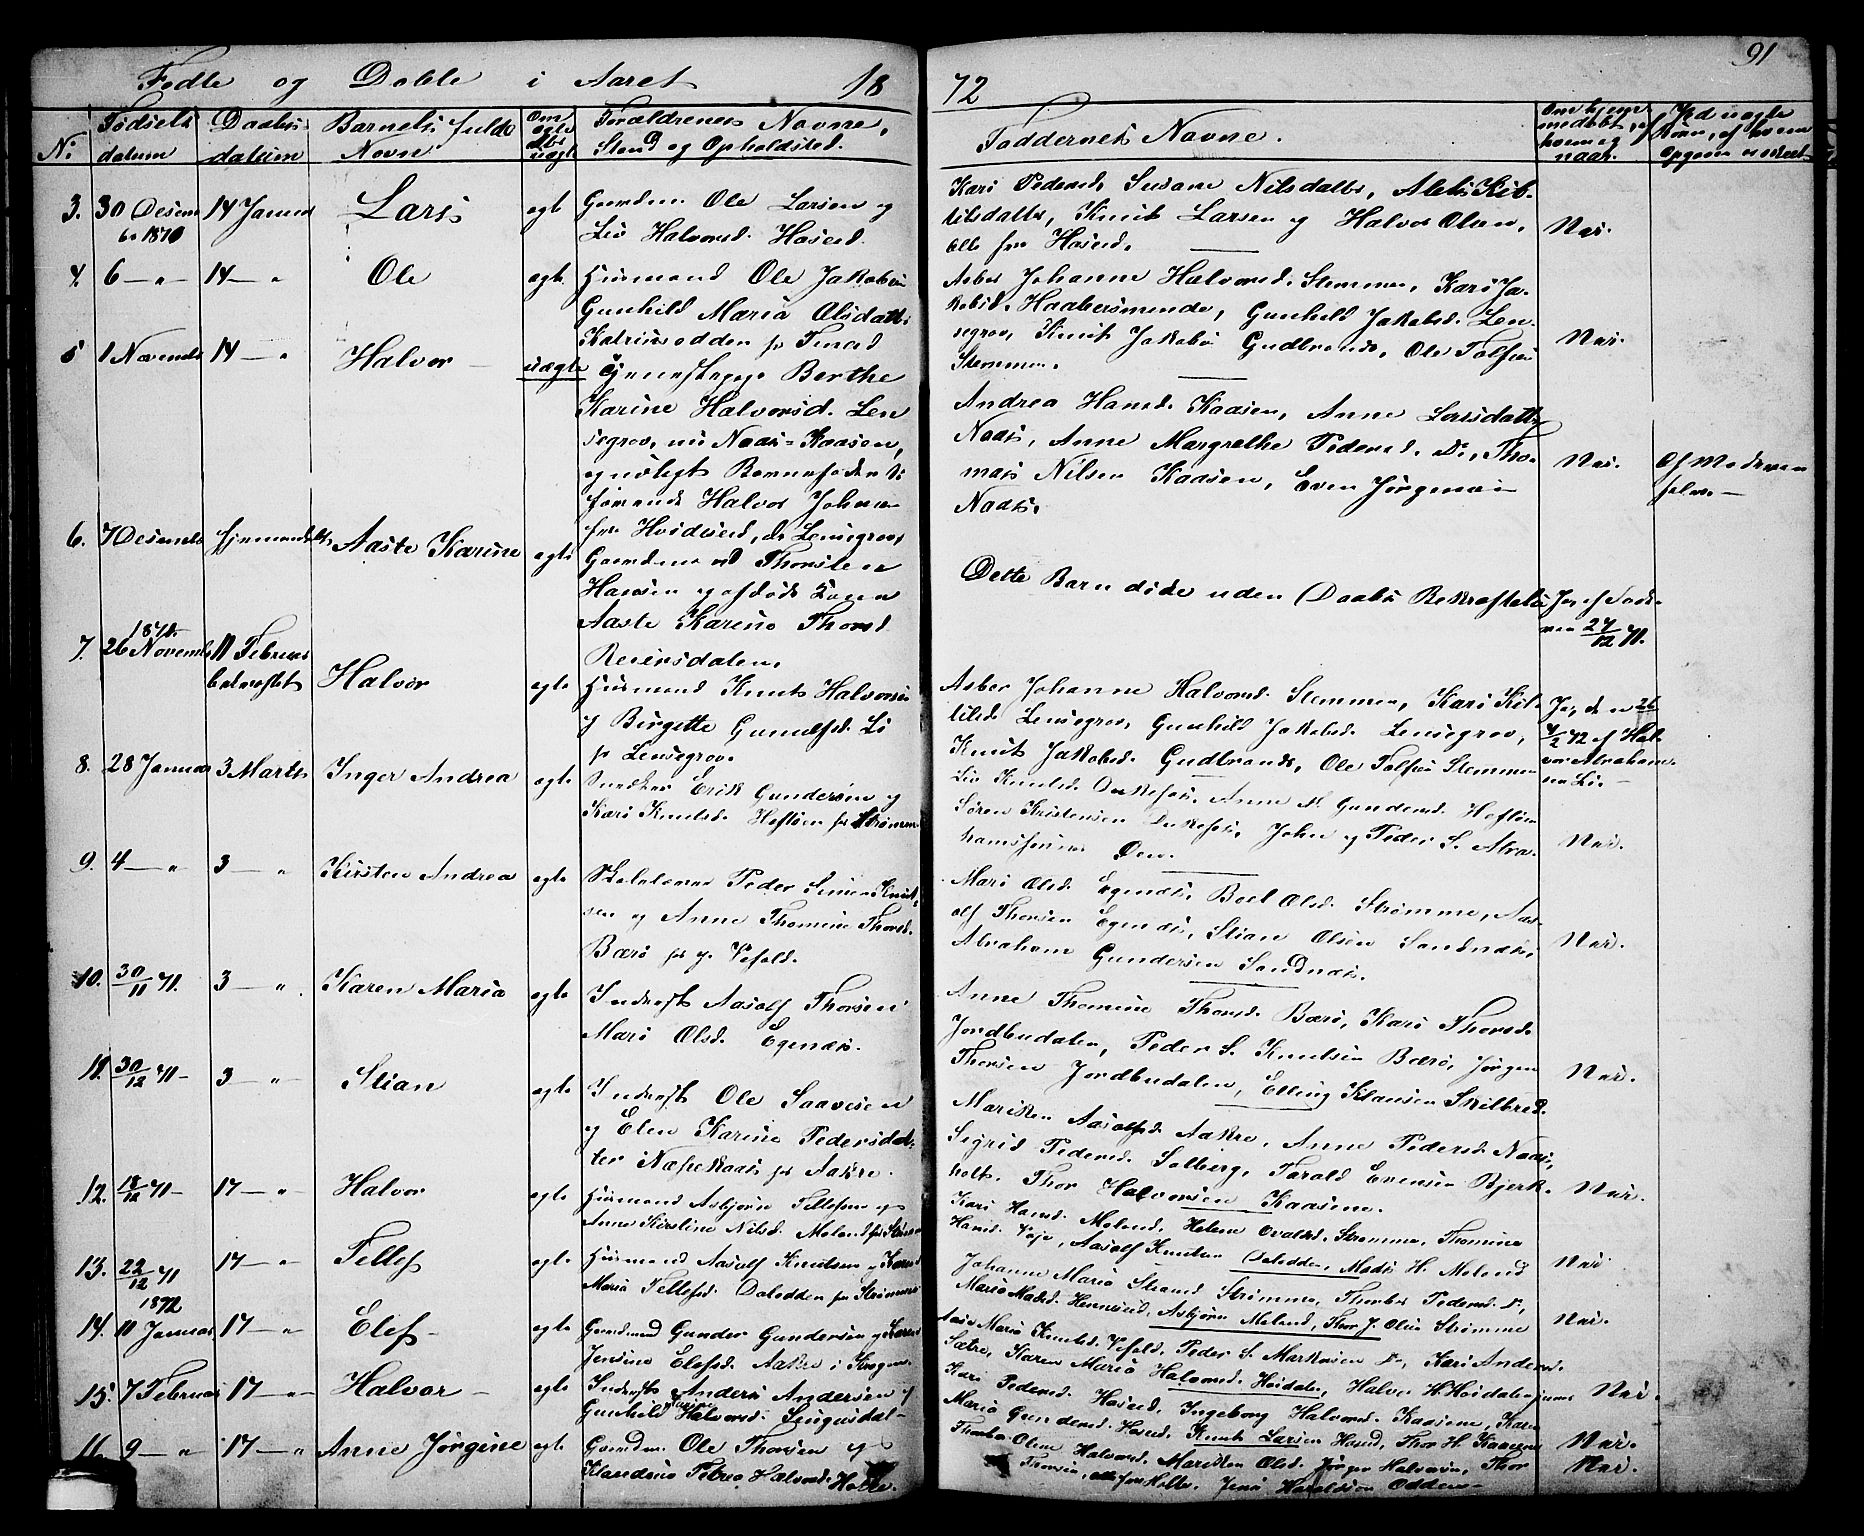 91
Fødte og Døbte i Aaret 18
72
No
Fødsels datum
Daabs datum
Barnets fulde Navn
Om egte eller uægte
Forældrenes Navne, Stand og Opholdsted.
Faddernes Navne.
Om hjemmedøbt, af hvem og naar.
Ved uægte Børn, af hvem Opgaven er skeet
3. 30 Desem 14 Januar Lars egte Gaardm. Ole Larsen og
br 1870 Liv Halvorsd. Haserd.
Kari Pedersd, Susane Nilsdatter, Aleks Kit-
tilsdatter, Knut Larsen og Halvor Olsen,
alle fra Haserd. Nei.
4. 6 — " 14 — " Ole egte Husmand Ole Jakobsen
Gunhild Maria Olsdatter
Katrineodden p Finrud
Asber Johanne Halvorsd. Stemmen, Kari Ja-
kobsd. Haabersmunde, Gunhild Jakobsd. Len-
segrov, Knut Jakobs Gudbrands, Ole Tolfsen
Stemmen. Nei.
5 1 Novembr 14 — " Halvor — uægte Berthe
Karine Halvorsd. Len
segrov, nu Naas-Kaasen,
ugift Barnefader
Halvor Johnsen
fra Hvideseid, Lensegrov
Andrea Hansd. Kaasen, Anne Larsdatter
Naas, Anne Margrethe Pedersd. Do, Tho-
mas Nilsen Kaasen, Even Jørgensen
Naas. Nei. Af Moderen
selv. —
6. 7 Desembr hjemmedøbt Aaste Karine egte Gaardmand Thorsten
Hansen og afdøde Kone
Aaste Karine Thorsd
Reiersdalen.
Dette Barn døde uden Daabs Bekræftelse Ja, af
27/12 71.
1871.
7. 26 Novembr 11 Februar
bekræftet Halvor egte Husmand Knut Halvorsen
og Birgette Gunulfsd. Li
p Lensegrov.
Asber Johanne Halvorsd. Stemmen, Kari Kit-
tilsd Lensegrov, Gunhild Jakobsd. Lensegrov,
Knut Jakobsd. Gudbrands, Ole Tolfsen Stemmen
Ja, den 26
/2 72 af Hal-
vor Abraham-
sen Li. —
8. 28 Januar 3 Marts Inger Andrea egte Snedker Erik Gundersen og
Kari Knutsd. Heftøen p Strømme
Liv Knutsd. Dukefos, Anne M. Gundersd. Heftøen
Søren Kristensen Dukefos, John og Peder S. Abra-
hamssønner Øen. Nei.
9. 4 — " 3 — " Kirsten Andrea egte Skolelærer Peder Simen Knut-
sen og Anne Thomine Thorsd.
Bærø p y. Vefald.
Mari Olsd. Egenæs, Boel Olsd. Strømme, Aas-
olf Thorsen Egenæs, Stian Olsen Sandnæs,
Abraham Gundersen Sandnæs. Nei.
10. 30/11 71. 3 — " Karen Maria egte Inderst Aasolf Thorsen
Mari Olsd. Egenæs.
Anne Thomine Thorsd. Bærø, Kari Thorsd.
Jordbudalen, Peder S. Knutsen Bærø, Jørgen
Thorsen Jordbudalen, Elling Klausen Skilbred. Nei.
11. 30/12 71 — 3 — " Stian egte Inderst Ole Saavesen
og Elen Karine Pedersdat-
ter Næsekaas p Aakre.
Mariken Aasolfsd. Aakre, Anne Pedersd. Naas,
Sigrid Pedersd. Solberg, Tarald Evensen Bjerk-
holt, Thor Halvorsen Kaasene. Nei.
12. 18/12 71 — 17 — " Halvor egte Husmand Asbjørn Tellefsen og
Anne Kirstine Nilsd. Moland p Strømme
Kari Hansd. Moland, Helene Evaldsd. Strømme, Thomine
Hansd. Veje, Aasolf Knutsen Dalodden, Mads H. Moland Nei.
13. 22/12 71 17 — " Tellef egte Husmand Aasolf Knutsen og Karen
Maria Tellefsd. Dalodden p Strømme
Johanne Maria Strand Strømme, Thorber Pedersd. Do,
Maria Madsd. Hennseid, Asbjørn Moland, Thor J. Olsen Strømme Nei.
1872
14. 10 Januar 17 — " Elef — egte Gaardmand Gunder Gundersen og Karen
Jensine Elefsd. Aakre i
Aase Maria Knutsd. Vefald, Peder S. Markusen Do, Kari Andersd.
Sætre, Karen Maria Halvorsd. Høidalen, Halvor H. Høidalen Nei.
15. 7 Februar 17 — " Halvor — egte Inderst Anders Andersen og
Gunhild Halvorsd. Lingusdal —
Kari Pedersd. Haserd, Ingeborg Halvorsd. Kaasene, Karen
Maria Gundersd. Haserd, Knut Larsen Haserd, Thor H. Kaasene Nei.
16. 9 — " 17 — " Anne Jørgine egte Gaardm. Ole Thorsen og
Klandsia Petrea Halvorsd. Holte.
Thorber Oline Halvorsd, Mariken Olsd. Jørgen Halvorsen, Thor
Thorsen, alle fra Holte. Jens Haraldsen Odden — Nei.